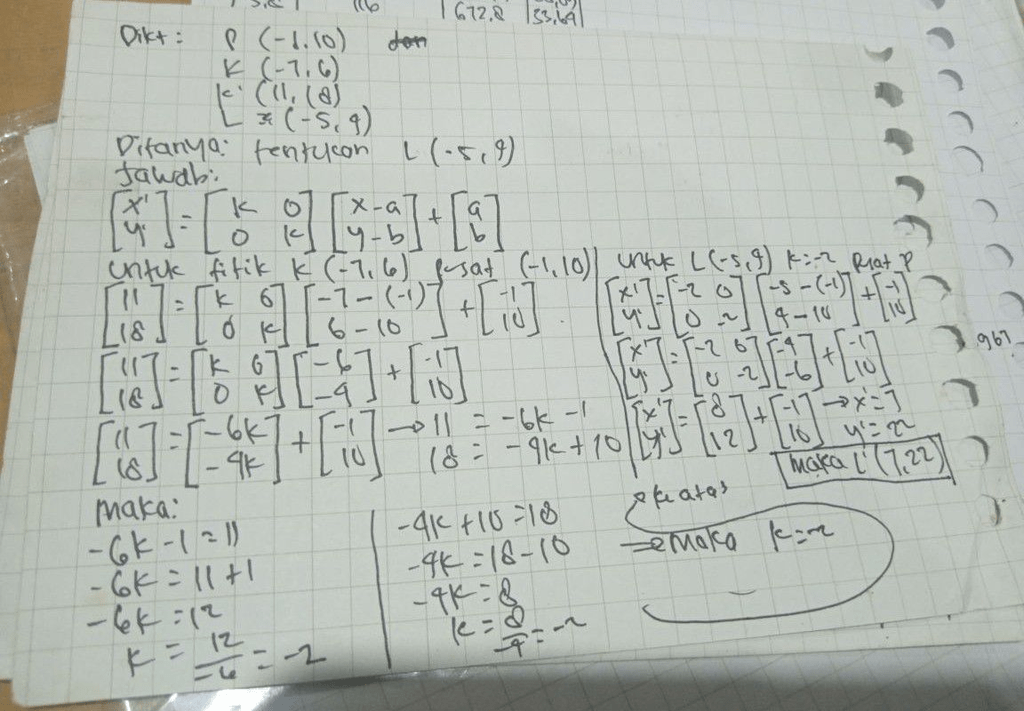 116
672,8
53,69
Dikt : P (-1,10)
K (-7,6)
K' (11,18)
L (-5,4)
Ditanya: tentukan L (-5,4)
Jawab:
[x' y'] = [k 0 0 k] [x-a y-b] + [a b]
untuk titik K (-7,6) pusat (-1,10)
[11 18] = [k 0 0 k] [-7-(-1) 6-10] + [-1 10]
[11 18] = [k 0 0 k] [-6 -4] + [-1 10]
[11 18] = [-6k -4k] + [-1 10] → 11 = -6k -1
18 = -4k + 10
untuk L (-5,4) k=-2 Pusat P
[x' y'] = [-2 0 0 -2] [-5-(-1) 4-10] + [-1 10]
[x' y'] = [-2 0 0 -2] [-4 -6] + [-1 10]
[x' y'] = [8 12] + [-1 10] → x'=7
y'=22
Maka L' (7,22)
967
Maka:
-6k-1 = 11
-6k = 11+1
-6k = 12
k = 12/-6 = -2
-4k+10 = 18
-4k = 18-10
-4k = 8
k = 8/-4 = -2
ke atas
⇒ Maka k = -2